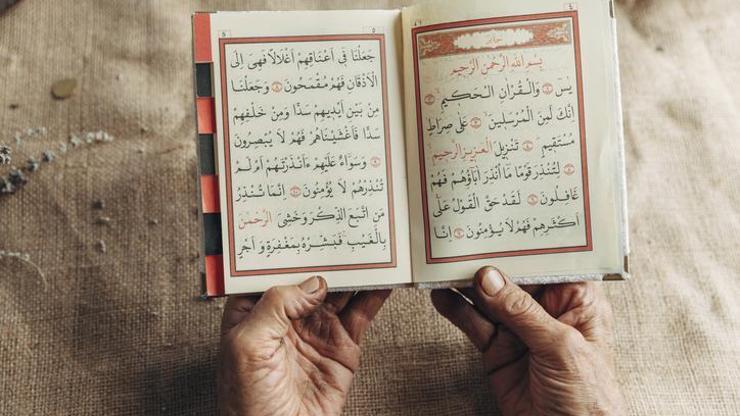 ٤
بِسْمِ اللّٰهِ الرَّحْمٰنِ الرَّحِيمِ
يٰسٓ وَالْقُرْاٰنِ الْحَكِيمِ
اِنَّكَ لَمِنَ الْمُرْسَلِينَ عَلٰى صِرَاطٍ
مُسْتَقِيمٍ تَنْزِيلَ الْعَزِيزِ الرَّحِيمِ
لِتُنْذِرَ قَوْمًا مَا اُنْذِرَ اٰبَاؤُهُمْ فَهُمْ
غَافِلُونَ لَقَدْ حَقَّ الْقَوْلُ عَلٰى
اَكْثَرِهِمْ فَهُمْ لَا يُؤْمِنُونَ اِنَّا
٥
جَعَلْنَا فِى اَعْنَاقِهِمْ اَغْلَالًا فَهِىَ اِلَى
الْاَذْقَانِ فَهُمْ مُقْمَحُونَ وَجَعَلْنَا
مِنْ بَيْنِ اَيْدِيهِمْ سَدًّا وَمِنْ خَلْفِهِمْ
سَدًّا فَاَغْشَيْنَاهُمْ فَهُمْ لَا يُبْصِرُونَ
وَسَوَٓاءٌ عَلَيْهِمْ ءَاَنْذَرْتَهُمْ اَمْ لَمْ
تُنْذِرْهُمْ لَا يُؤْمِنُونَ اِنَّمَا تُنْذِرُ
مَنِ اتَّبَعَ الذِّكْرَ وَخَشِىَ الرَّحْمٰنَ
بِالْغَيْبِ فَبَشِّرْهُ بِمَغْفِرَةٍ وَ اَجْرٍ